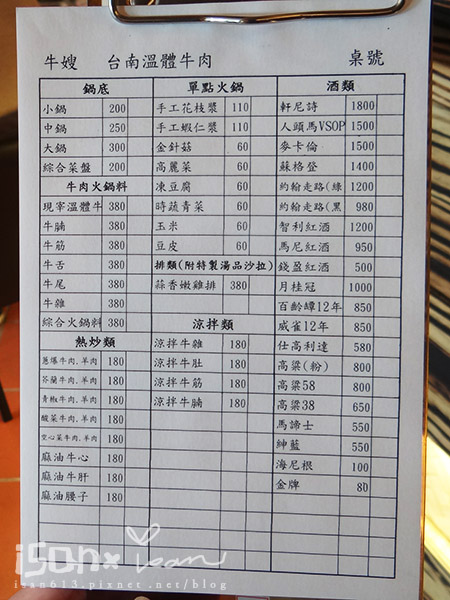 牛嫂 台南溫體牛肉 桌號
鍋底
小鍋 200
中鍋 250
大鍋 300
綜合菜盤 200
牛肉火鍋料
現宰溫體牛 380
牛腩 380
牛筋 380
牛舌 380
牛尾 380
牛雜 380
綜合火鍋料 380
熱炒類
蔥爆牛肉.羊肉 180
芥蘭牛肉.羊肉 180
青椒牛肉.羊肉 180
酸菜牛肉.羊肉 180
空心菜牛肉.羊肉 180
麻油牛心 180
麻油牛肝 180
麻油腰子 180
單點火鍋
手工花枝漿 110
手工蝦仁漿 110
金針菇 60
高麗菜 60
凍豆腐 60
時蔬青菜 60
玉米 60
豆皮 60
排類(附特製湯品沙拉)
蒜香嫩雞排 380
涼拌類
涼拌牛雜 180
涼拌牛肚 180
涼拌牛筋 180
涼拌牛腩 180
酒類
軒尼詩 1800
人頭馬VSOP 1500
麥卡倫 1500
蘇格登 1400
約翰走路(綠 1200
約翰走路(黑 980
智利紅酒 1200
馬尼紅酒 950
錢盈紅酒 500
月桂冠 1000
百齡罈12年 850
威雀12年 850
仕高利達 580
高粱(粉) 800
高粱58 800
高粱38 650
馬諦士 550
紳藍 550
海尼根 100
金牌 80
isan613.pixnet.net/blog